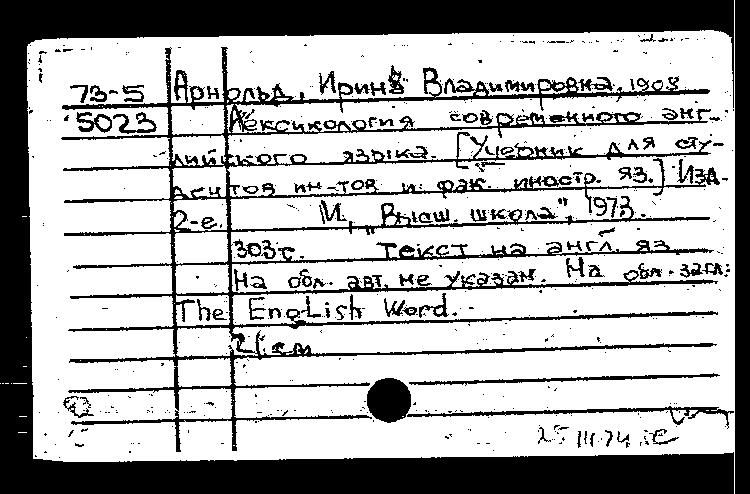 73-5 Арнольд, Ирина Владимировна, 1908
5023 Лексикология современного анг-
лийского языка. [Учебник для сту-
дентов ин-тов и фак. иностр. яз.] Изд.
2-е. М., "Высш. школа", 1973.
303 с. Текст на англ. яз.
На обл. авт. не указан. На обл. загл:
The English Word.
21 cm
25 III 74